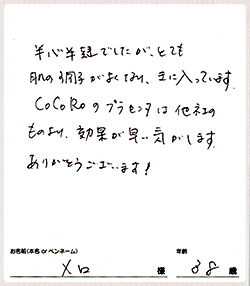 半心半疑でしたが、とても
肌の調子がよくなり、気に入っています。
CoCoRoのプラセンタは他社の
ものより、効果が早い気がします。
ありがとうございます!
お名前(本名 or ペンネーム)
年齢
メロ 様 38 歳